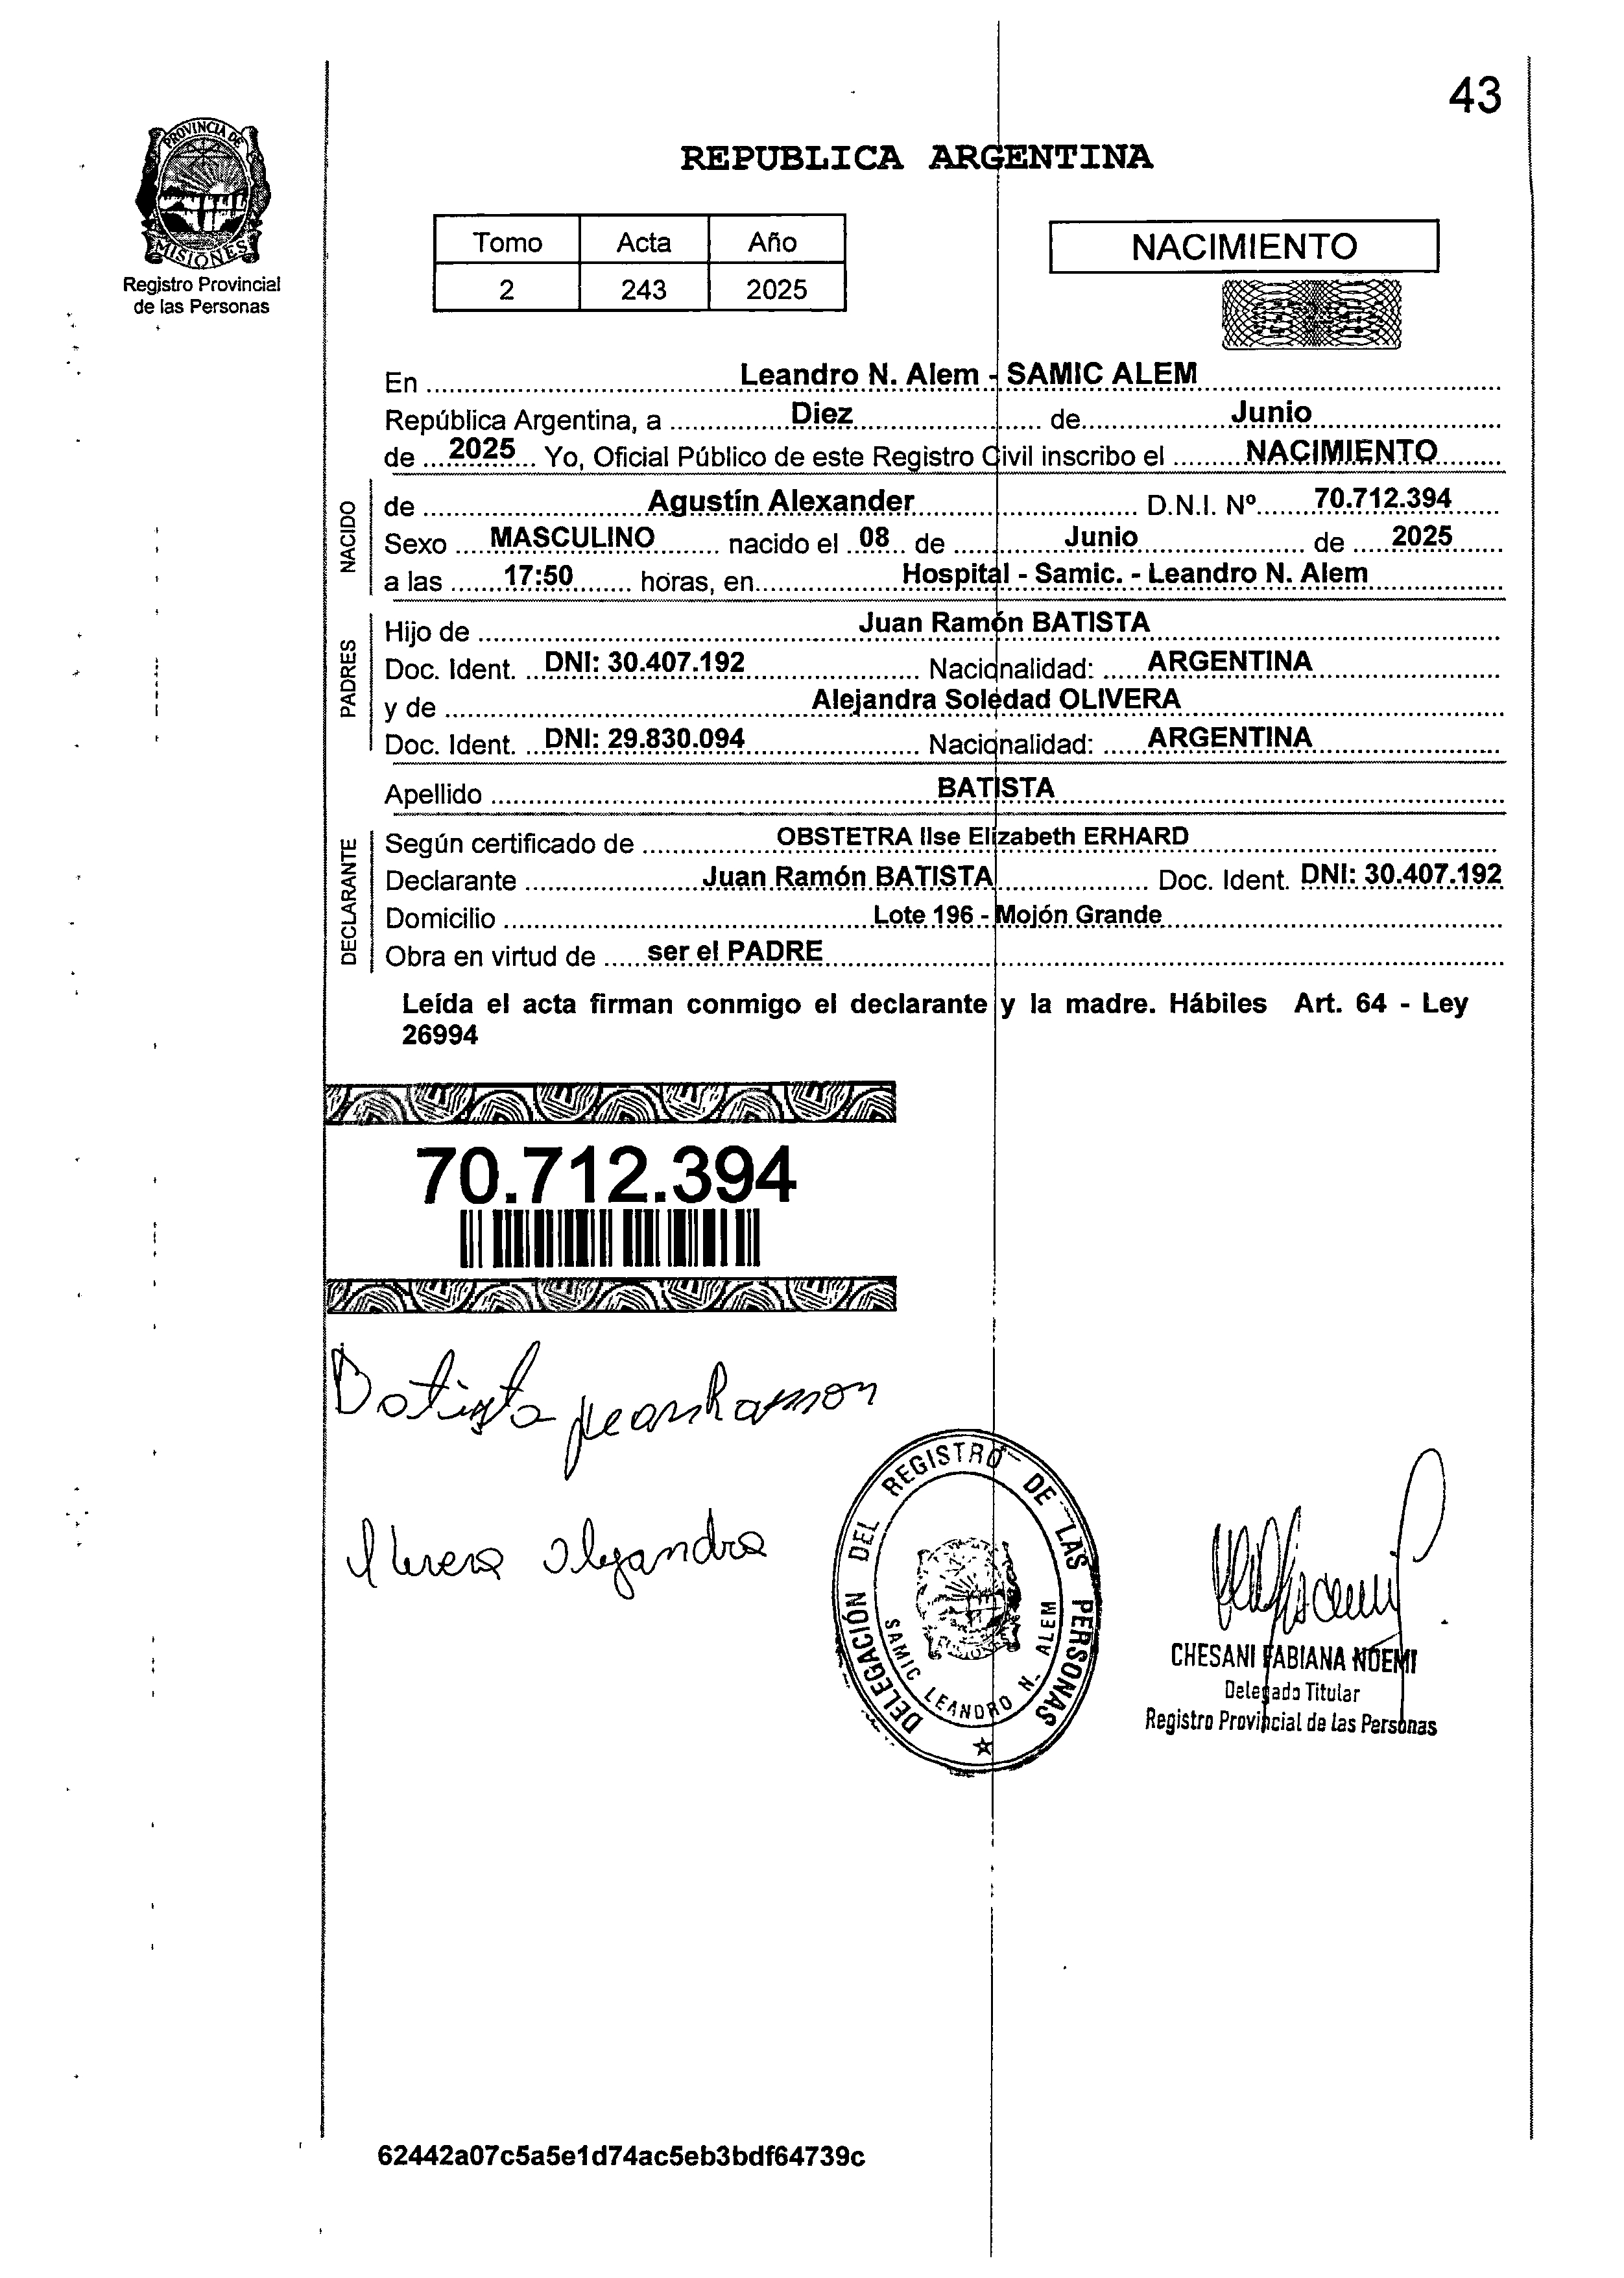 43
PROVINCIA DE
MISIONES
Registro Provincial
de las Personas
REPUBLICA ARGENTINA
Tomo Acta Año
2 243 2025
NACIMIENTO
En Leandro N. Alem - SAMIC ALEM
República Argentina, a Diez de Junio
de 2025 Yo, Oficial Público de este Registro Civil inscribo el NACIMIENTO
NACIDO
de Agustín Alexander D.N.I. Nº 70.712.394
Sexo MASCULINO nacido el 08 de Junio de 2025
a las 17:50 horas, en Hospital - Samic. - Leandro N. Alem
PADRES
Hijo de Juan Ramón BATISTA
Doc. Ident. DNI: 30.407.192 Nacionalidad: ARGENTINA
y de Alejandra Soledad OLIVERA
Doc. Ident. DNI: 29.830.094 Nacionalidad: ARGENTINA
Apellido BATISTA
DECLARANTE
Según certificado de OBSTETRA Ilse Elizabeth ERHARD
Declarante Juan Ramón BATISTA Doc. Ident. DNI: 30.407.192
Domicilio Lote 196 - Mojón Grande
Obra en virtud de ser el PADRE
Leída el acta firman conmigo el declarante y la madre. Hábiles Art. 64 - Ley
26994
70.712.394
Batista juan Ramon
Alejandra
DELEGACIÓN DEL REGISTRO DE LAS PERSONAS
SAMIC LEANDRO N. ALEM
CHESANI FABIANA NOEMI
Delegado Titular
Registro Provincial de las Personas
62442a07c5a5e1d74ac5eb3bdf64739c